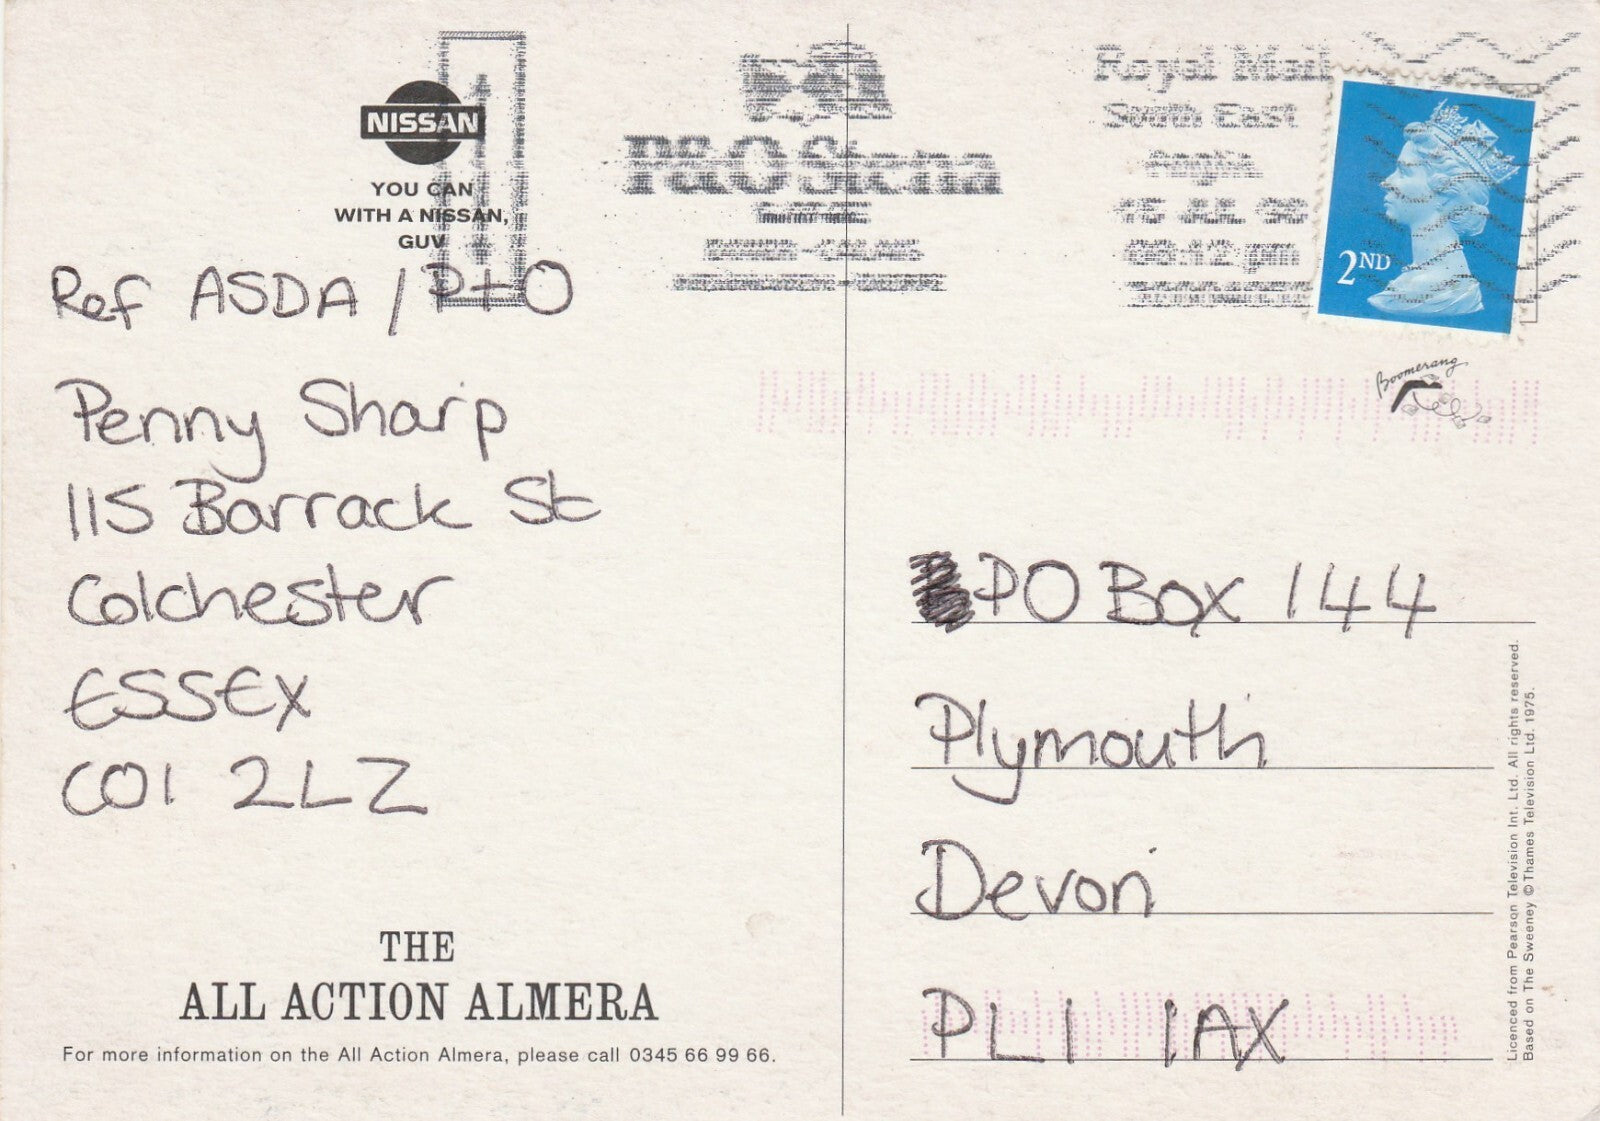 NISSAN
YOU CAN
WITH A NISSAN,
GUV
P&O Stena
Royal Mail
South East
Anglia
2ND
Boomerang
Ref ASDA / P+O
Penny Sharp
115 Barrack St
Colchester
ESSEX
CO1 2LZ
THE
ALL ACTION ALMERA
For more information on the All Action Almera, please call 0345 66 99 66.
PO Box 144
Plymouth
Devon
PL1 1AX
Licenced from Pearson Television Int. Ltd. All rights reserved.
Based on The Sweeney © Thames Television Ltd. 1975.